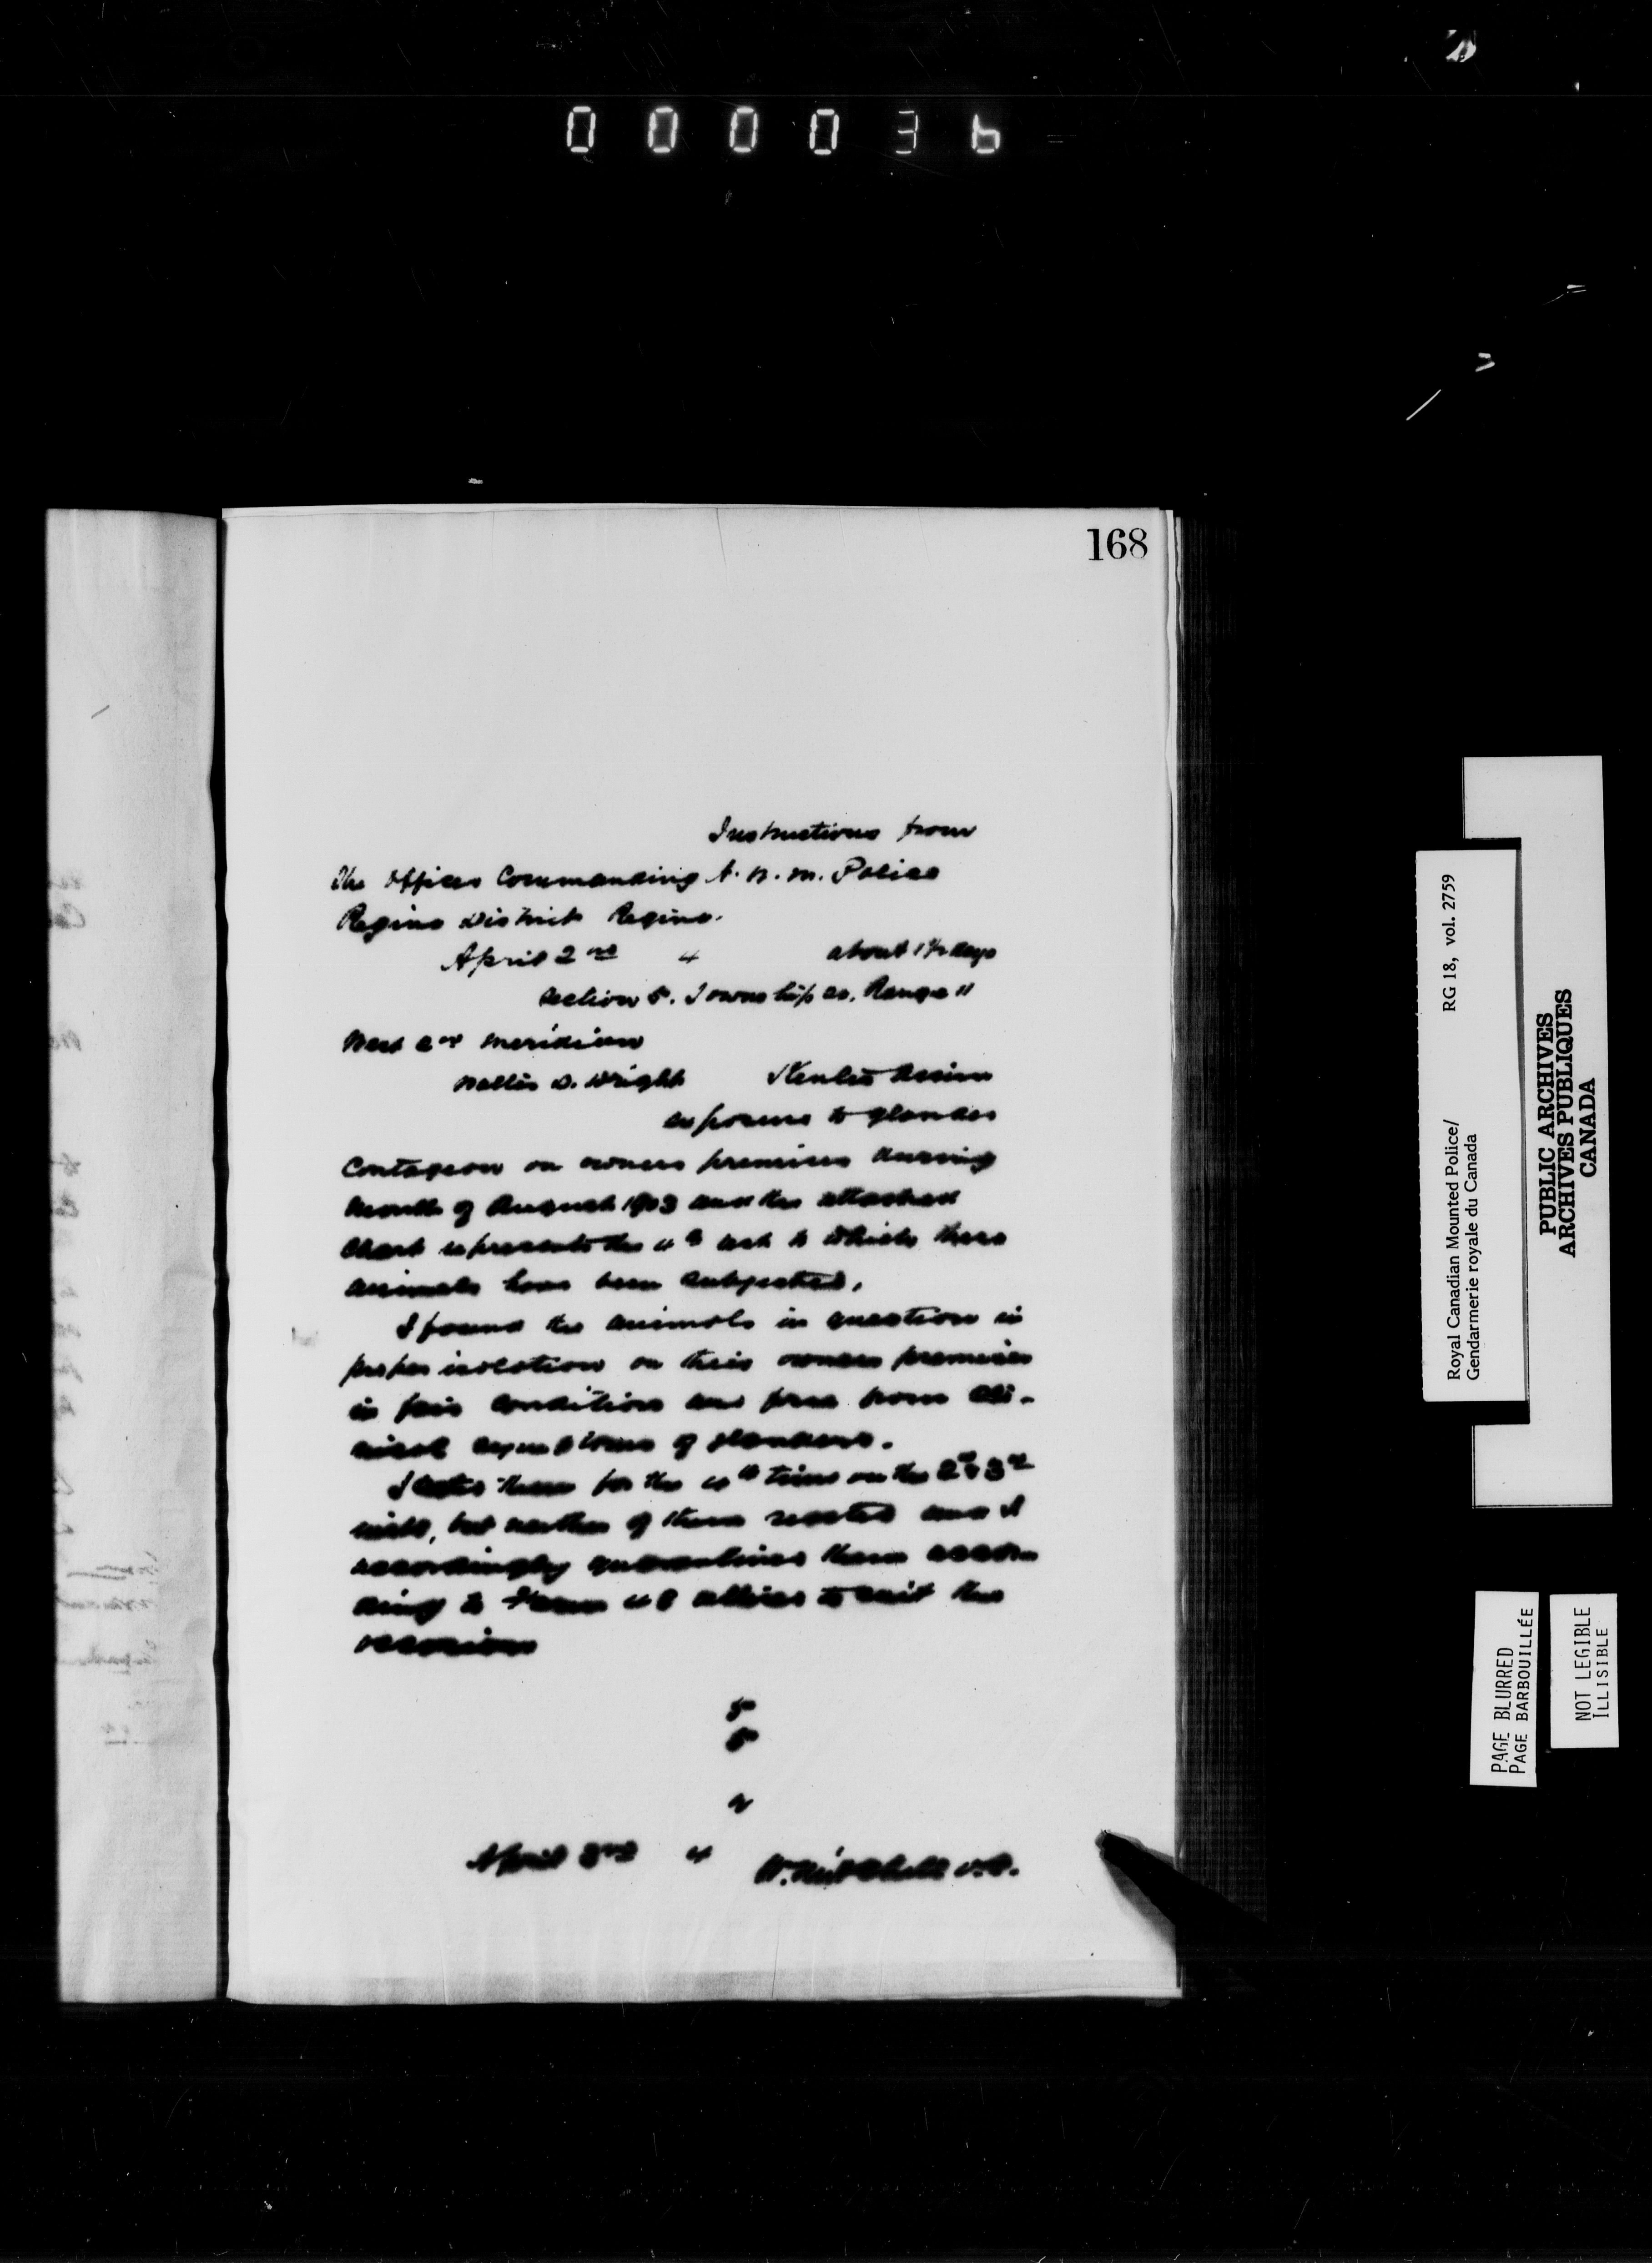 000036
168
Instructions from
The Officer Commanding N. W. M. Police
Regina District Regina.
April 2nd 4 about 1½ days
Section 5. Township 20. Range 11
West 2nd Meridian
D. Wright
exposure to glanders
Contagion on owners premises during
month of August 1903 and the attached
Chart represents the 4th test to which these
animals have been subjected.
I found the animals in question in
proper isolation on their owners premises
in fair condition and free from cli-
nical symptoms of glanders.
I tested them for the 4th time on the 2nd & 3rd
inst, but neither of them reacted and I
accordingly quarantined them accor-
ding to Form altered to suit the
occasion
5
5
2
April 3rd 4 W. Mitchell V.S.
Royal Canadian Mounted Police/ RG 18, vol. 2759
Gendarmerie royale du Canada
PUBLIC ARCHIVES
ARCHIVES PUBLIQUES
CANADA
PAGE BLURRED
PAGE BARBOUILLÉE
NOT LEGIBLE
ILLISIBLE